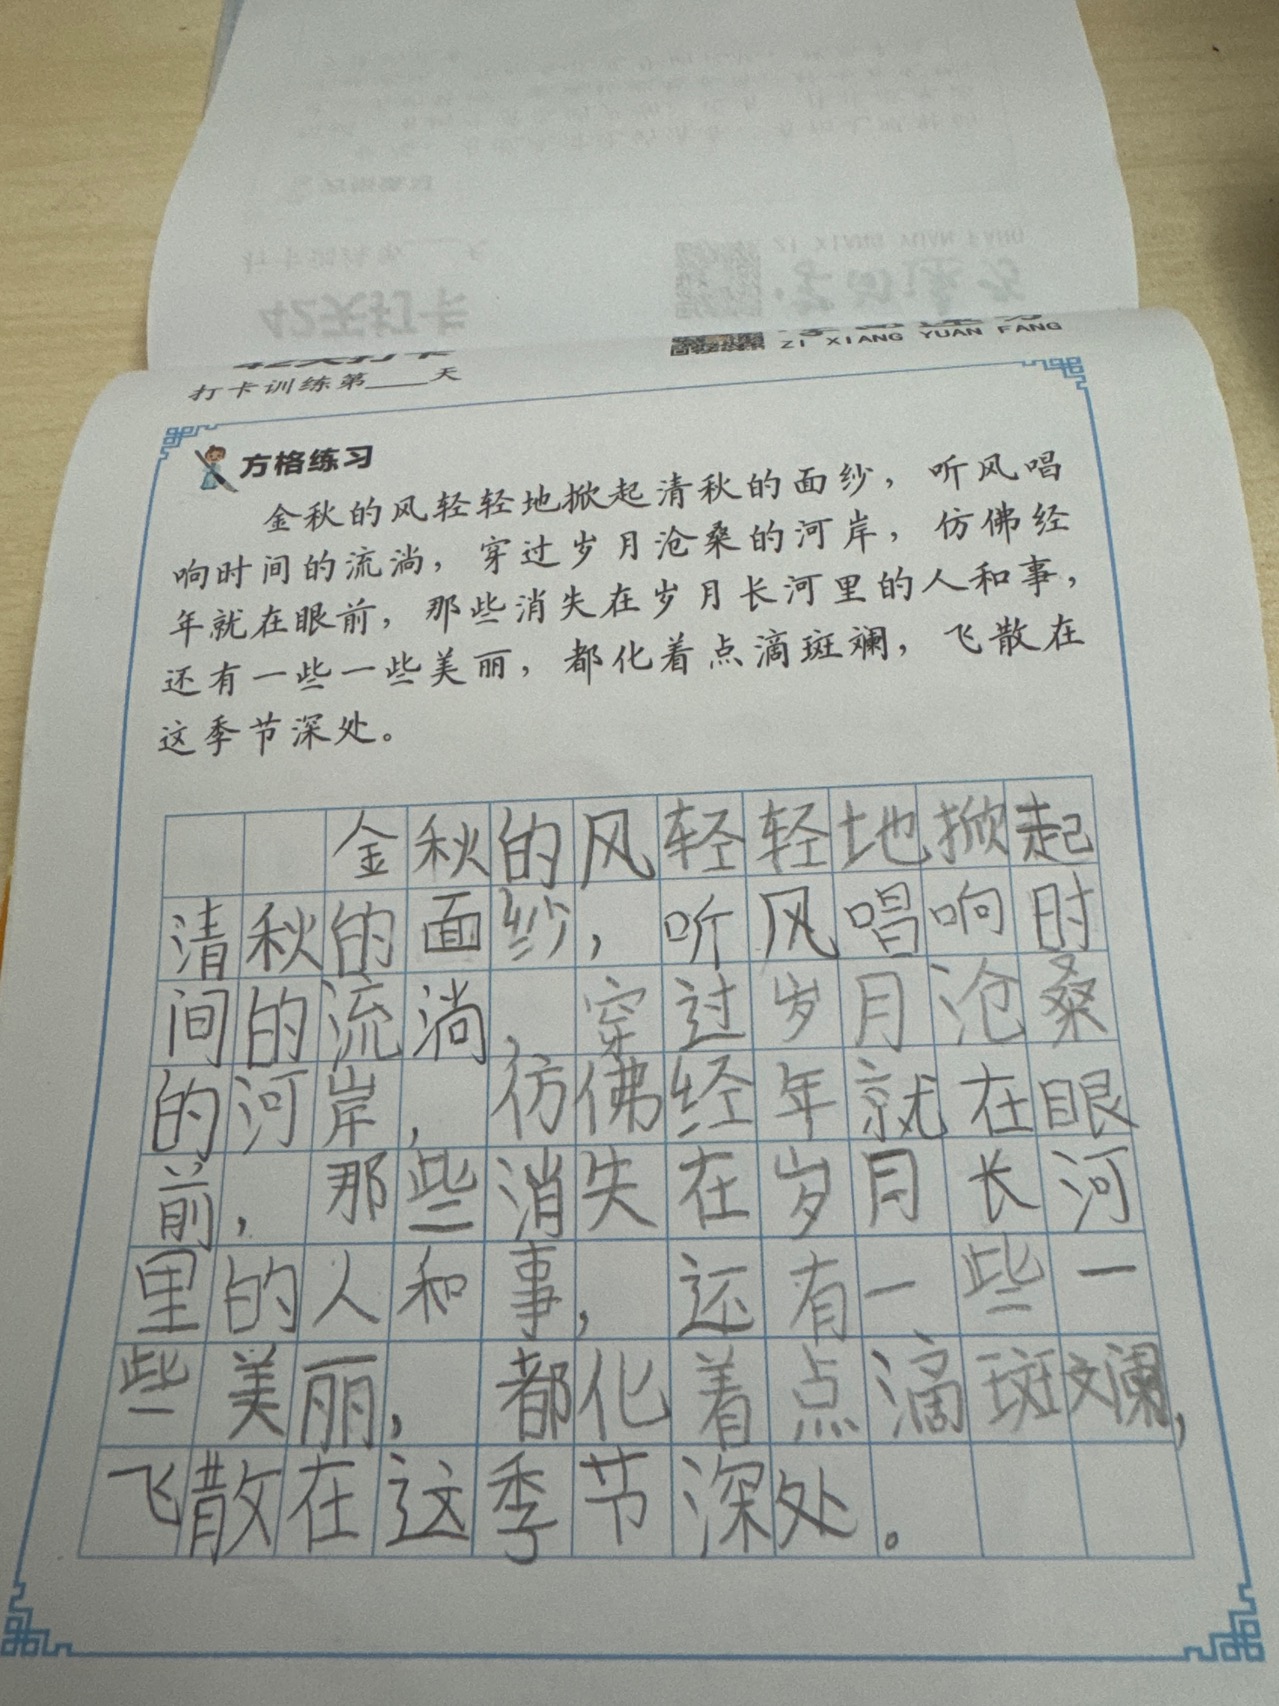 打卡训练第____天
ZI XIANG YUAN FANG
方格练习
金秋的风轻轻地掀起清秋的面纱，听风唱
响时间的流淌，穿过岁月沧桑的河岸，仿佛经
年就在眼前，那些消失在岁月长河里的人和事，
还有一些一些美丽，都化着点滴斑斓，飞散在
这季节深处。
金秋的风轻轻地掀起
清秋的面纱，听风唱响时
间的流淌，穿过岁月沧桑
的河岸，仿佛经年就在眼
前，那些消失在岁月长河
里的人和事，还有一些一
些美丽，都化着点滴斑斓，
飞散在这季节深处。